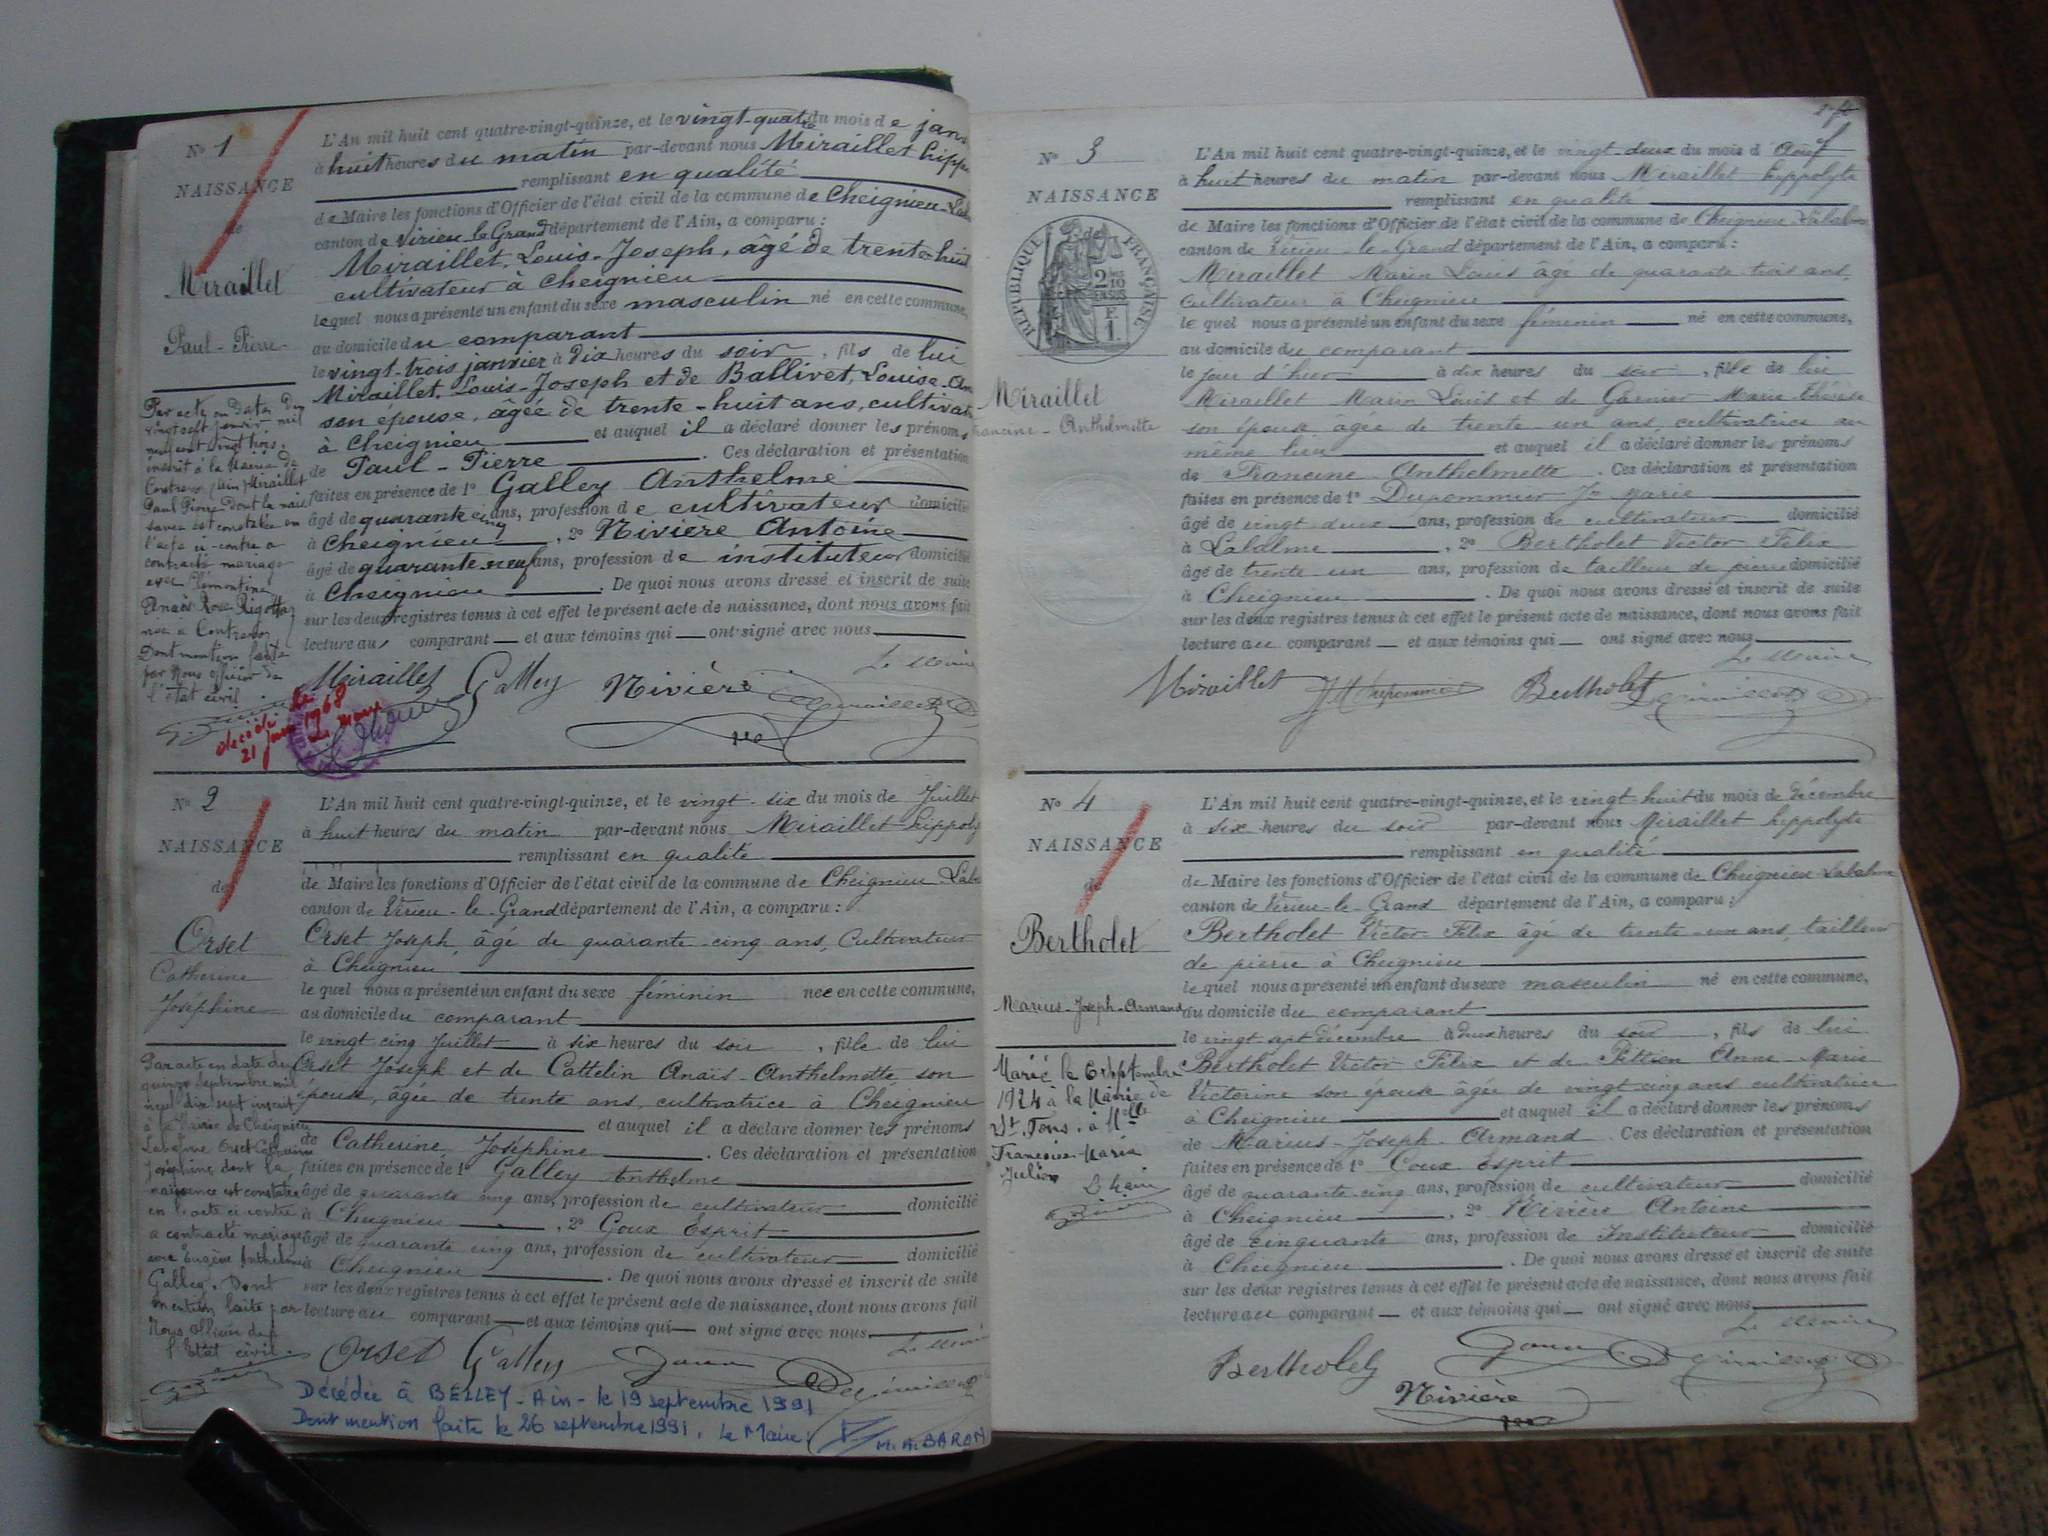 N° 1
NAISSANCE
de
Miraillet
Paul-Pierre
L'An mil huit cent quatre-vingt-quinze, et le vingt-quatre du mois de janv
à huit heures du matin par-devant nous Miraillet hippo
remplissant en qualité
de Maire les fonctions d'Officier de l'état civil de la commune de Cheignieu-Laba
canton de Virieu-le-Grand département de l'Ain, a comparu :
Miraillet, Louis-Joseph, âgé de trente-huit
cultivateur à Cheignieu
lequel nous a présenté un enfant du sexe masculin né en cette commune,
au domicile du comparant
le vingt-trois janvier à dix heures du soir, fils de lui
Miraillet, Louis-Joseph et de Ballivet, Louise-Am
son épouse, âgée de trente-huit ans, cultivat
à Cheignieu et auquel il a déclaré donner les prénoms
de Paul-Pierre. Ces déclaration et présentation
faites en présence de 1° Galley Anthelme
âgé de quarante cinq ans, profession de cultivateur domicilié
à Cheignieu, 2° Nivière Antoine
âgé de quarante-neuf ans, profession de instituteur domicilié
à Cheignieu. De quoi nous avons dressé et inscrit de suite
sur les deux registres tenus à cet effet le présent acte de naissance, dont nous avons fait
lecture au comparant et aux témoins qui ont signé avec nous
Le Maire
Miraillet Galley Nivière Miraillet
Par acte en date du
vingt sept janvier mil
neuf cent vingt trois,
inscrit à la Mairie de
Contrevoz (Ain) Miraillet
Paul Pierre dont la nais
sance est constatée en
l'acte ci-contre a
contracté mariage
avec Clémentine
Anaïs Rose Rigottaz
née à Contrevoz
Dont mention faite
par Nous officier de
l'état civil
décédé le
21 juin 1968
Le Maire
N° 2
NAISSANCE
de
Orset
Catherine
Joséphine
L'An mil huit cent quatre-vingt-quinze, et le vingt-six du mois de Juillet
à huit heures du matin par-devant nous Miraillet hippoly
remplissant en qualité
de Maire les fonctions d'Officier de l'état civil de la commune de Cheignieu-Laba
canton de Virieu-le-Grand département de l'Ain, a comparu :
Orset Joseph, âgé de quarante-cinq ans, Cultivateur
à Cheignieu
lequel nous a présenté un enfant du sexe féminin née en cette commune,
au domicile du comparant
le vingt cinq Juillet à six heures du soir, fille de lui
Orset Joseph et de Cattelin Anaïs-Anthelmette son
épouse, âgée de trente ans, cultivatrice à Cheignieu
et auquel il a déclaré donner les prénoms
de Catherine Joséphine. Ces déclaration et présentation
faites en présence de 1° Galley Anthelme
âgé de quarante cinq ans, profession de cultivateur domicilié
à Cheignieu, 2° Goux Esprit
âgé de quarante cinq ans, profession de cultivateur domicilié
à Cheignieu. De quoi nous avons dressé et inscrit de suite
sur les deux registres tenus à cet effet le présent acte de naissance, dont nous avons fait
lecture au comparant et aux témoins qui ont signé avec nous
Le Maire
Orset Galley Goux Miraillet
Par acte en date du
quinze septembre mil
neuf dix sept inscrit
à la Mairie de Cheignieu
Labalme Orset Catherine
Joséphine dont la
naissance est constatée
en l'acte ci-contre
a contracté mariage
avec Eugène Anthelme
Galley. Dont
mention faite par
Nous officier de
l'état civil
Décédée à BELLEY - Ain - le 19 septembre 1991
Dont mention faite le 26 septembre 1991. Le Maire. M. A. BARON
N° 3
NAISSANCE
RÉPUBLIQUE FRANÇAISE
2 10
EN SUS
F.
1.
Miraillet
Francine-Anthelmette
L'An mil huit cent quatre-vingt-quinze, et le vingt-deux du mois d'Août
à huit heures du matin par-devant nous Miraillet hippolyte
remplissant en qualité
de Maire les fonctions d'Officier de l'état civil de la commune de Cheignieu Labalme
canton de Virieu-le-Grand département de l'Ain, a comparu :
Miraillet Marin Louis âgé de quarante trois ans,
cultivateur à Cheignieu
le quel nous a présenté un enfant du sexe féminin né en cette commune,
au domicile du comparant
le jour d'hier à dix heures du soir, fille de lui
Miraillet Marin Louis et de Garnier Marie Thérèse
son épouse âgée de trente-un ans, cultivatrice au
même lieu et auquel il a déclaré donner les prénoms
de Francine Anthelmette. Ces déclaration et présentation
faites en présence de 1° Dupommier Jn Marie
âgé de vingt deux ans, profession de cultivateur domicilié
à Labalme, 2° Bertholet Victor Félix
âgé de trente un ans, profession de tailleur de pierre domicilié
à Cheignieu. De quoi nous avons dressé et inscrit de suite
sur les deux registres tenus à cet effet le présent acte de naissance, dont nous avons fait
lecture au comparant et aux témoins qui ont signé avec nous
Le Maire
Miraillet JM Dupommier Bertholet Miraillet
N° 4
NAISSANCE
de
Bertholet
Marius-Joseph-Armand
L'An mil huit cent quatre-vingt-quinze, et le vingt huit du mois de Décembre
à six heures du soir par-devant nous Miraillet hippolyte
remplissant en qualité
de Maire les fonctions d'Officier de l'état civil de la commune de Cheignieu-Labalme
canton de Virieu-le-Grand département de l'Ain, a comparu :
Bertholet Victor Félix âgé de trente-un ans, tailleur
de pierre à Cheignieu
le quel nous a présenté un enfant du sexe masculin né en cette commune,
au domicile du comparant
le vingt sept décembre à deux heures du soir, fils de lui
Bertholet Victor Félix et de Anne-Marie
Victorine son épouse âgée de vingt cinq ans cultivatrice
à Cheignieu et auquel il a déclaré donner les prénoms
de Marius-Joseph-Armand. Ces déclaration et présentation
faites en présence de 1° Goux Esprit
âgé de quarante-cinq ans, profession de cultivateur domicilié
à Cheignieu, 2° Nivière Antoine
âgé de cinquante ans, profession de Instituteur domicilié
à Cheignieu. De quoi nous avons dressé et inscrit de suite
sur les deux registres tenus à cet effet le présent acte de naissance, dont nous avons fait
lecture au comparant et aux témoins qui ont signé avec nous
Le Maire
Bertholet Goux Miraillet
Nivière
Marié le 6 septembre
1924 à la Mairie de
St. Fons, à Mlle
Françoise-Maria
Le Maire